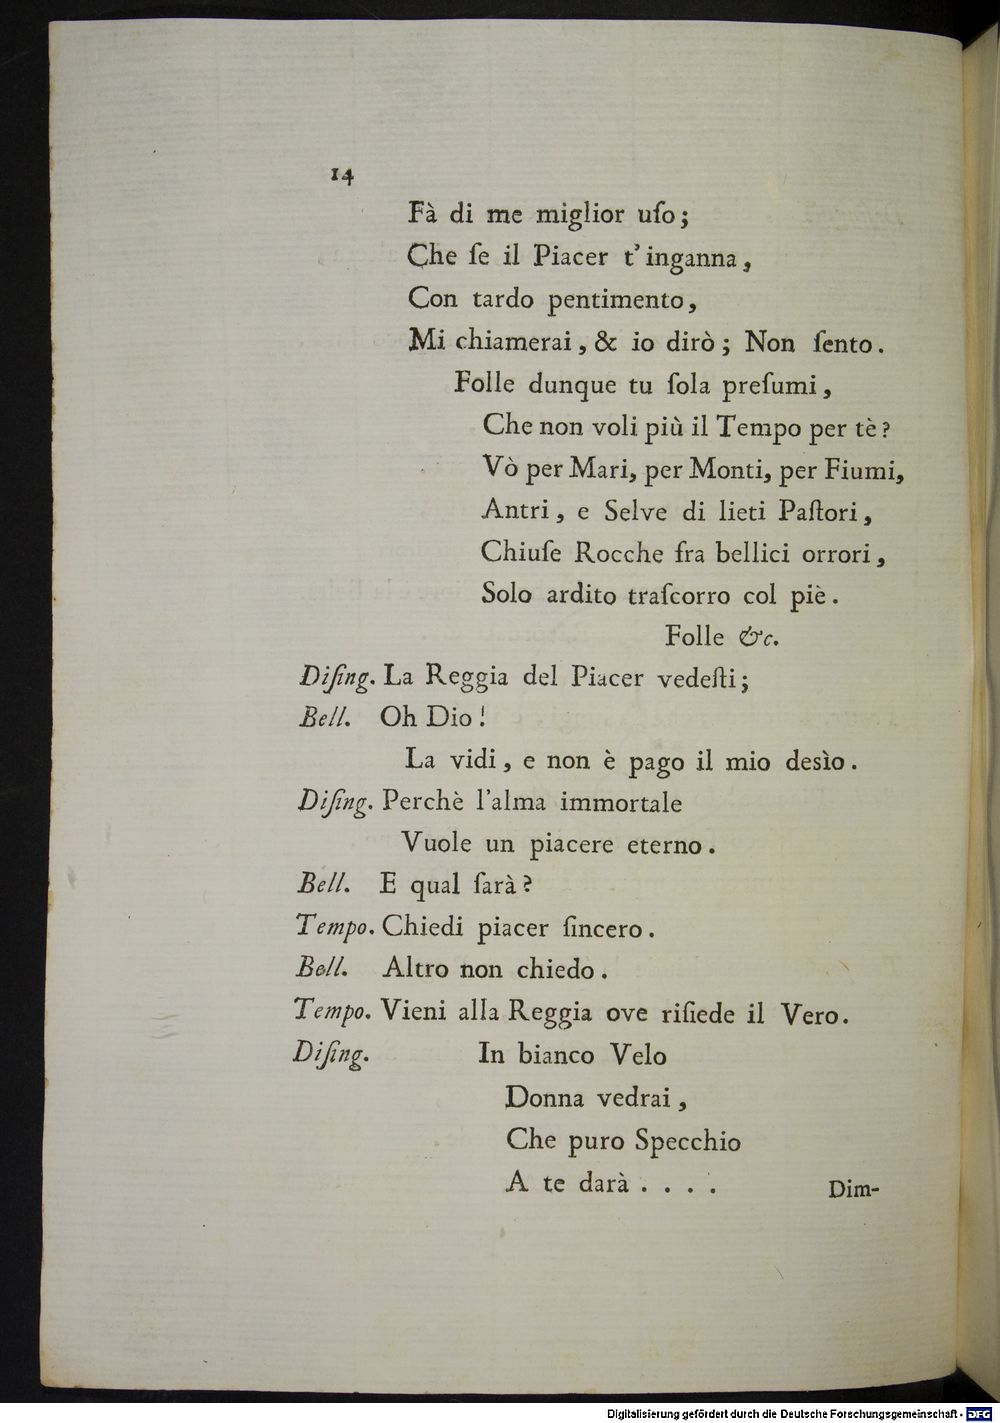 14
Fà di me miglior uſo;
Che ſe il Piacer t'inganna,
Con tardo pentimento,
Mi chiamerai, & io dirò; Non ſento.
Folle dunque tu ſola preſumi,
Che non voli più il Tempo per tè?
Vò per Mari, per Monti, per Fiumi,
Antri, e Selve di lieti Paſtori,
Chiuſe Rocche fra bellici orrori,
Solo ardito traſcorro col piè.
Folle &c.
Diſing. La Reggia del Piacer vedeſti;
Bell. Oh Dio!
La vidi, e non è pago il mio desìo.
Diſing. Perchè l'alma immortale
Vuole un piacere eterno.
Bell. E qual ſarà?
Tempo. Chiedi piacer ſincero.
Bell. Altro non chiedo.
Tempo. Vieni alla Reggia ove riſiede il Vero.
Diſing. In bianco Velo
Donna vedrai,
Che puro Specchio
A te darà . . . .
Dim-
Digitalisierung gefördert durch die Deutsche Forschungsgemeinschaft - DFG